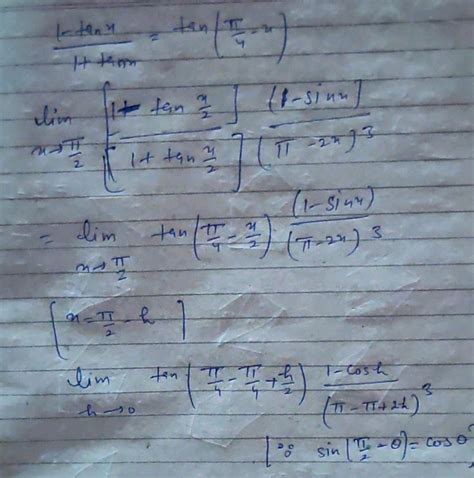 (1-tanx)/(1+tanx) = tan(π/4 - x)
lim x→π/2 [1- tan x/2]/[1+ tan x/2] (1-sinx]/(π-2x)^3
= lim x→π/2 tan(π/4 - x/2) (1-sinx)/(π-2x)^3
[x=π/2 - h]
lim h→0 tan(π/4 - π/4 + h/2) (1-cosh)/(π-π+2h)^3
[∵ sin[π/2 - θ]=cosθ]